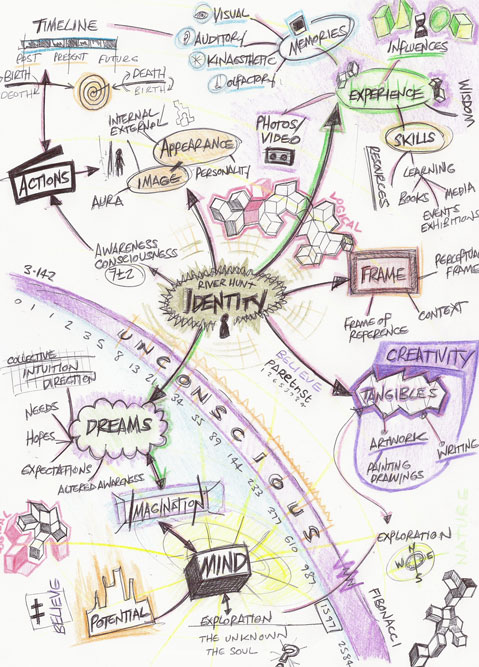 TIMELINE
PAST PRESENT FUTURE
BIRTH
DEATH
DEATH
BIRTH
VISUAL
AUDITORY
KINAESTHETIC
OLFACTORY
MEMORIES
INFLUENCES
EXPERIENCE
WISDOM
SKILLS
RESOURCES
LEARNING
BOOKS
MEDIA
EVENTS
EXHIBITIONS
PHOTOS/
VIDEO
INTERNAL/
EXTERNAL
APPEARANCE
IMAGE
PERSONALITY
AURA
ACTIONS
AWARENESS
CONSCIOUSNESS
7±2
LOGICAL
RIVER HUNT
IDENTITY
FRAME
PERCEPTUAL
FRAME
FRAME OF
REFERENCE
CONTEXT
3.142
0 1 1 2 3 5 8 13 21 34 55 89 144 233 377 610 987 1597 2584
UNCONSCIOUS
FIBONACCI
BELIEVE
CREATIVITY
TANGIBLES
ARTWORK
WRITING
PAINTING
DRAWINGS
COLLECTIVE
INTUITION
DIRECTION
NEEDS
HOPES
EXPECTATIONS
ALTERED AWARENESS
DREAMS
IMAGINATION
MIND
POTENTIAL
BELIEVE
EXPLORATION
THE UNKNOWN
THE SOUL
?
EXPLORATION
N
W E
S
NATURE